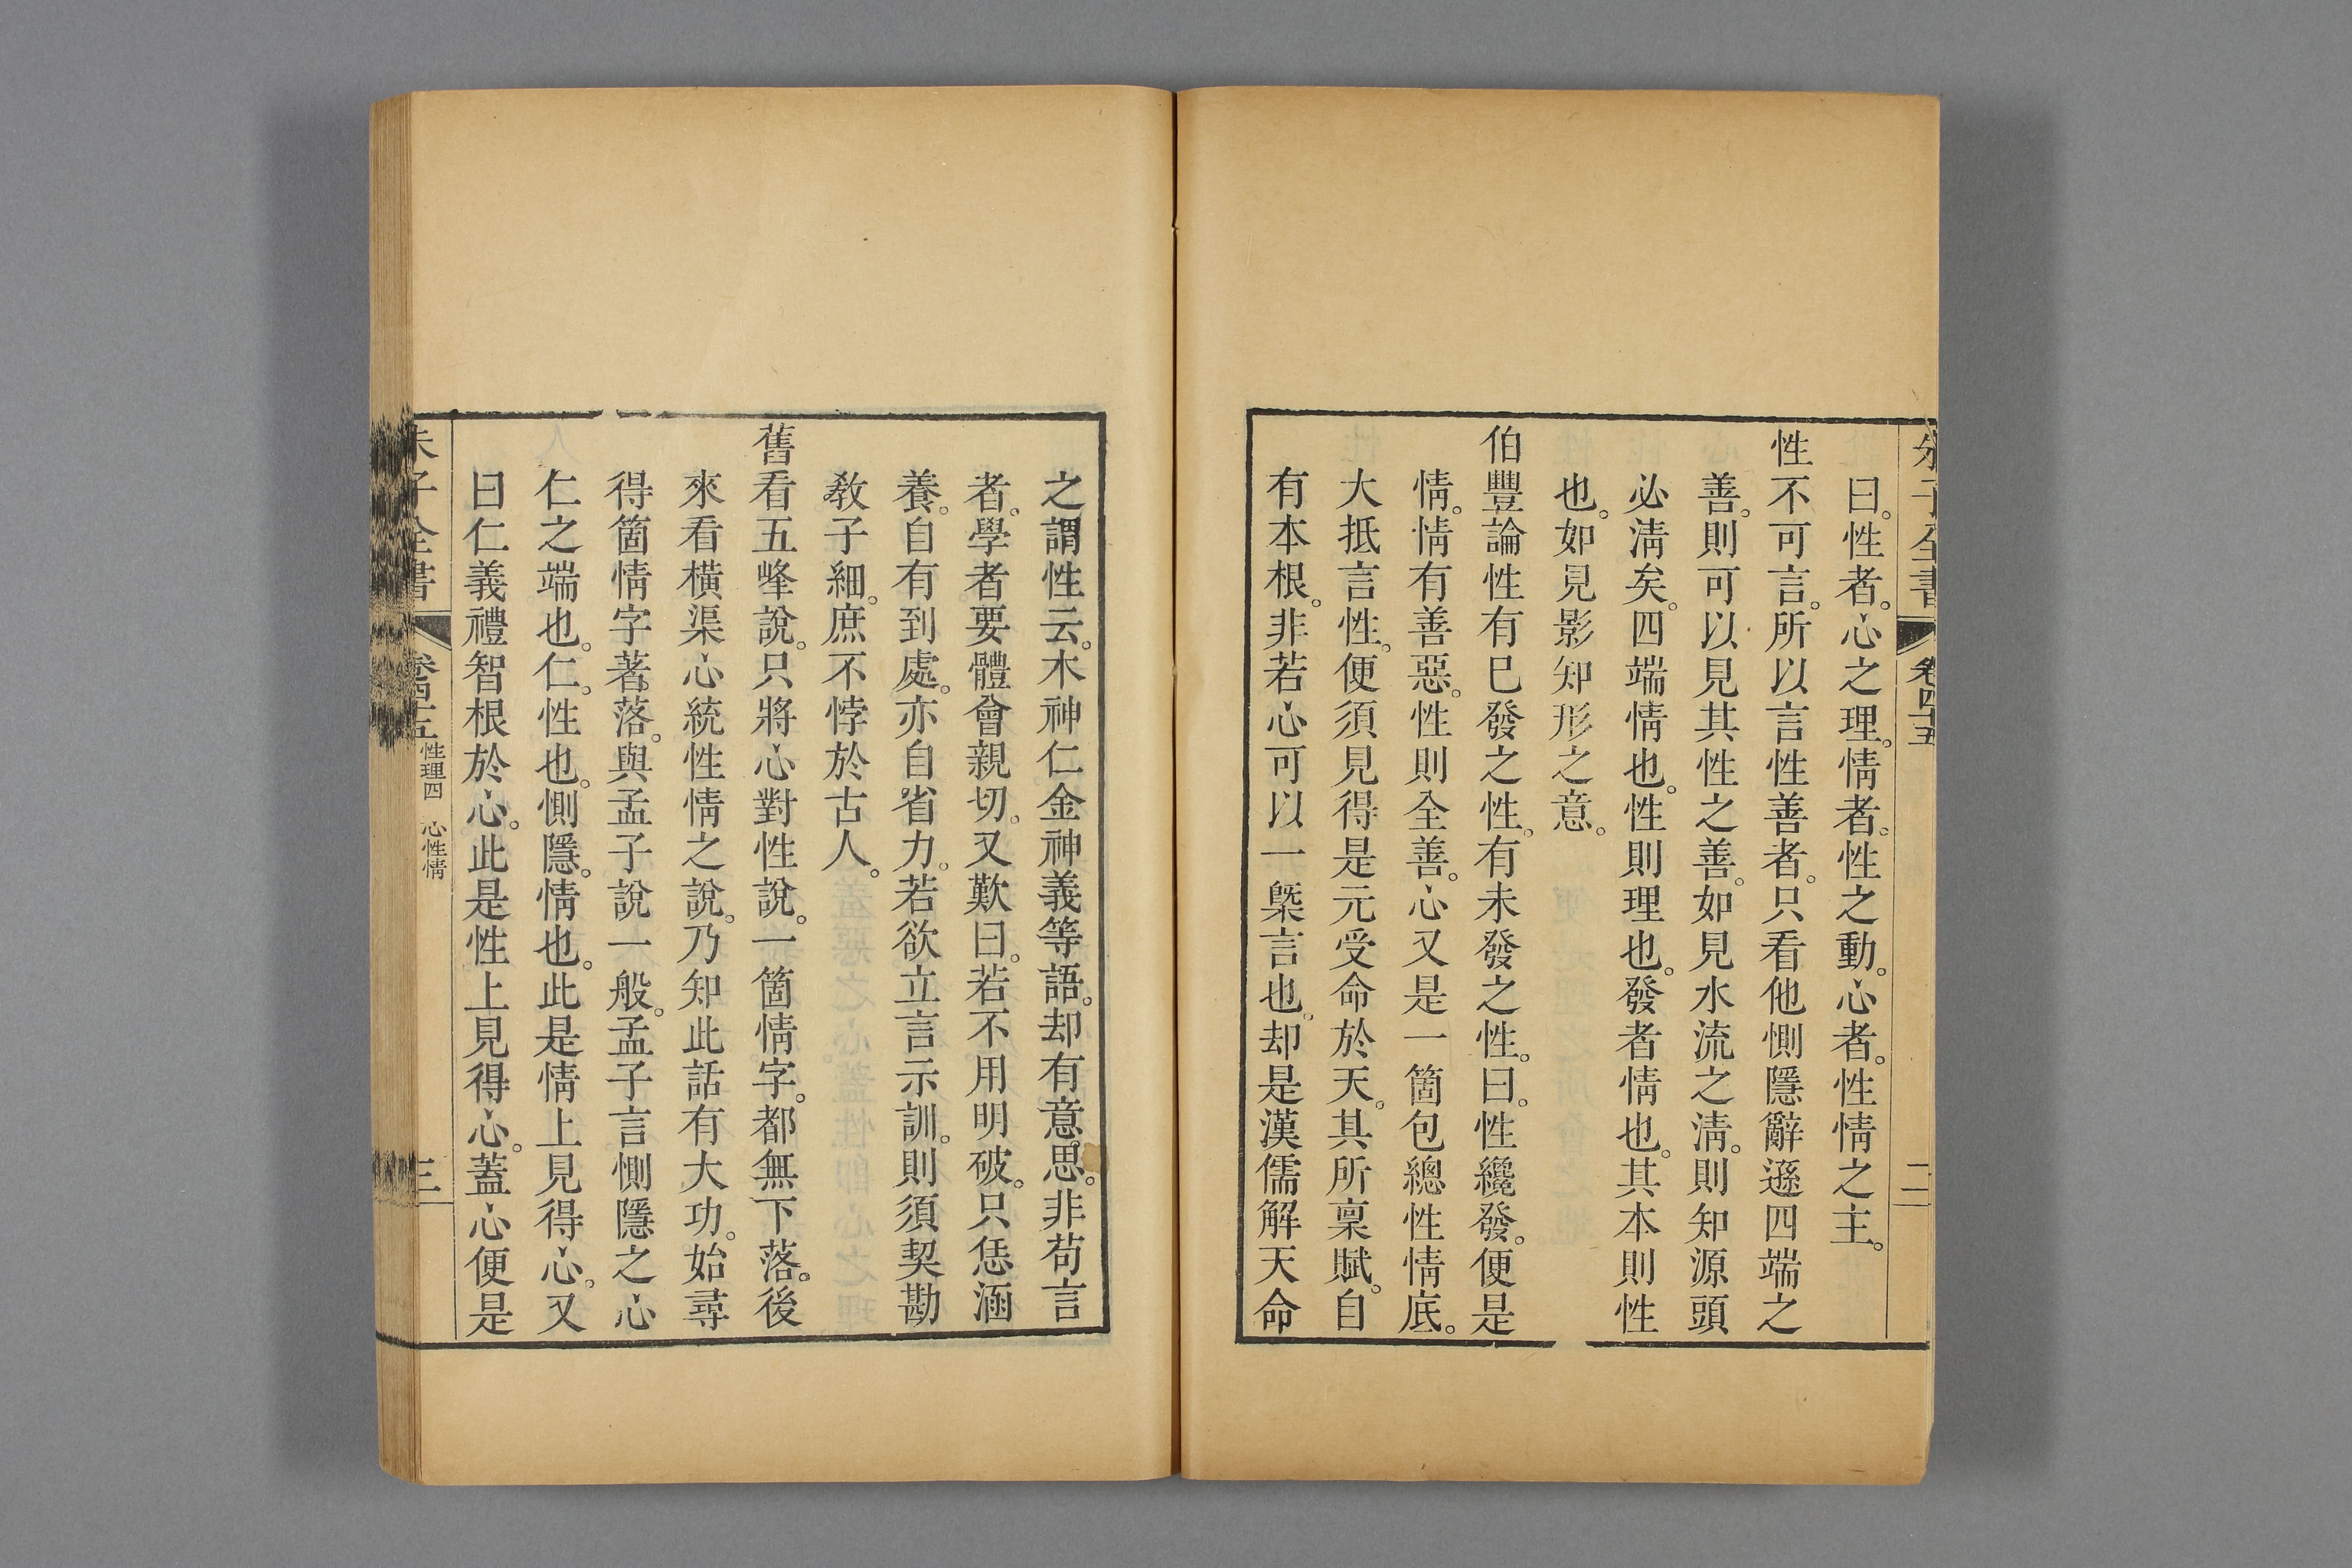 朱子全書 卷四十五 二
曰。性者。心之理。情者。性之動。心者。性情之主。
性不可言。所以言性善者。只看他惻隱辭遜四端之
善。則可以見其性之善。如見水流之淸。則知源頭
必淸矣。四端情也。性則理也。發者情也。其本則性
也。如見影知形之意。
伯豐論性有已發之性。有未發之性。曰。性纔發。便是
情。情有善惡。性則全善。心又是一箇包總性情底。
大抵言性。便須見得是元受命於天。其所稟賦。自
有本根。非若心可以一槩言也。却是漢儒解天命
之謂性云。木神仁金神義等語。却有意思。非苟言
者。學者要體會親切。又歎曰。若不用明破。只恁涵
養。自有到處。亦自省力。若欲立言示訓。則須契勘
敎子細。庶不悖於古人。
舊看五峰說。只將心對性說。一箇情字。都無下落。後
來看橫渠心統性情之說。乃知此話有大功。始尋
得箇情字著落。與孟子說一般。孟子言惻隱之心
仁之端也。仁。性也。惻隱。情也。此是情上見得心。又
曰仁義禮智根於心。此是性上見得心。蓋心便是
朱子全書 卷四十五 性理四 心性情 三